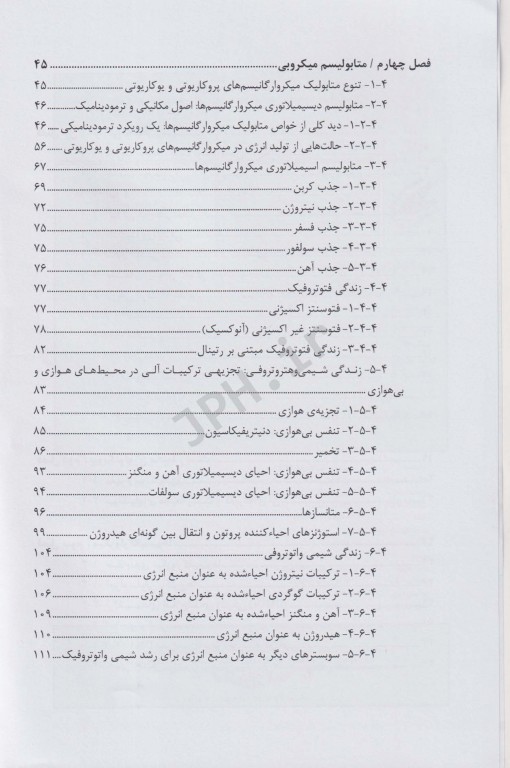 فصل چهارم / متابولیسم میکروبی ........ ۴۵
۴-۱- تنوع متابولیک میکروارگانیسم‌های پروکاریوتی و یوکاریوتی ........ ۴۵
۴-۲- متابولیسم دیسیمیلاتوری میکروارگانیسم‌ها: اصول مکانیکی و ترمودینامیک ........ ۴۶
۴-۲-۱- دید کلی از خواص متابولیک میکروارگانیسم‌ها: یک رویکرد ترمودینامیکی ..... ۴۶
۴-۲-۲- حالت‌هایی از تولید انرژی در میکروارگانیسم‌های پروکاریوتی و یوکاریوتی ..... ۵۶
۴-۳- متابولیسم اسیمیلاتوری میکروارگانیسم‌ها ........ ۶۷
۴-۳-۱- جذب کربن ........ ۶۹
۴-۳-۲- جذب نیتروژن ........ ۷۲
۴-۳-۳- جذب فسفر ........ ۷۵
۴-۳-۴- جذب سولفور ........ ۷۵
۴-۳-۵- جذب آهن ........ ۷۶
۴-۴- زندگی فتوتروفیک ........ ۷۷
۴-۴-۱- فتوسنتز اکسیژنی ........ ۷۷
۴-۴-۲- فتوسنتز غیر اکسیژنی (آنوکسیک) ........ ۷۸
۴-۴-۳- زندگی فتوتروفیک مبتنی بر رتینال ........ ۸۲
۴-۵- زندگی شیمی‌وهتروتروفی: تجزیهی ترکیبات آلی در محیط‌های هوازی و
بی‌هوازی ........ ۸۳
۴-۵-۱- تجزیه‌ی هوازی ........ ۸۴
۴-۵-۲- تنفس بی‌هوازی: دنیتریفیکاسیون ........ ۸۵
۴-۵-۳- تخمیر ........ ۸۶
۴-۵-۴- تنفس بی‌هوازی: احیای دیسیمیلاتوری آهن و منگنز ........ ۹۳
۴-۵-۵- تنفس بی‌هوازی: احیای دیسیمیلاتوری سولفات ........ ۹۴
۴-۵-۶- متانسازها ........ ۹۶
۴-۵-۷- استوژنزهای احیاءکننده پروتون و انتقال بین گونه‌ای هیدروژن ........ ۹۹
۴-۶- زندگی شیمی واتوتروفی ........ ۱۰۴
۴-۶-۱- ترکیبات نیتروژن احیاءشده به عنوان منبع انرژی ........ ۱۰۴
۴-۶-۲- ترکیبات گوگردی احیاءشده به عنوان منبع انرژی ........ ۱۰۶
۴-۶-۳- آهن و منگنز احیاءشده به عنوان منبع انرژی ........ ۱۰۹
۴-۶-۴- هیدروژن به عنوان منبع انرژی ........ ۱۱۰
۴-۶-۵- سوبسترهای دیگر به عنوان منبع انرژی برای رشد شیمی واتوتروفیک .... ۱۱۱
JPH.ir